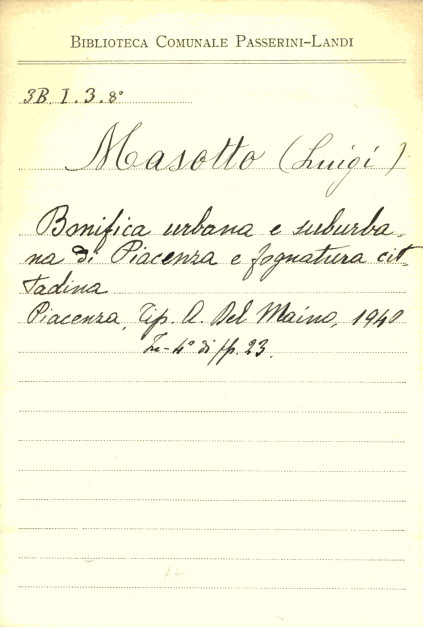 BIBLIOTECA COMUNALE PASSERINI-LANDI
3B. I. 3. 8°
Masotto (Luigi)
Bonifica urbana e suburba-
na di Piacenza e fognatura cit-
tadina
Piacenza, Tip. A. Del Maino, 1940
In-4° di pp. 23.